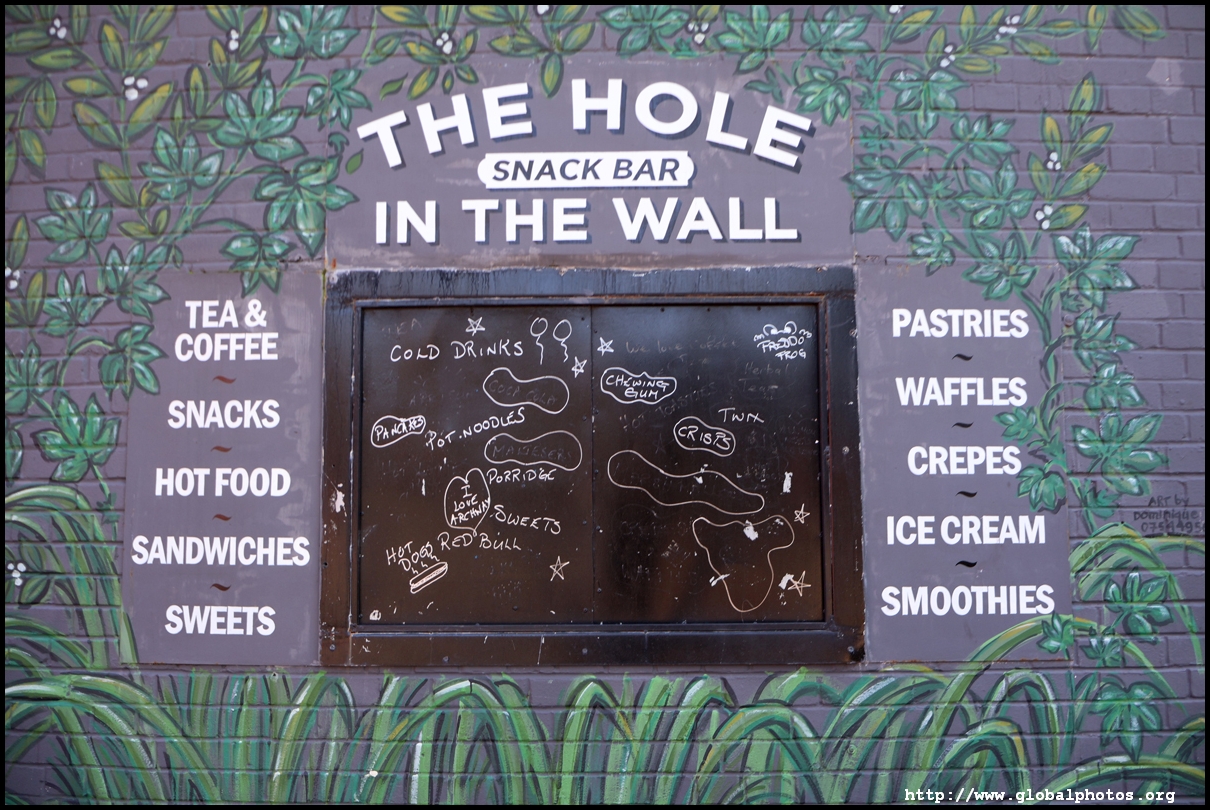 THE HOLE
SNACK BAR
IN THE WALL
TEA &
COFFEE
SNACKS
HOT FOOD
SANDWICHES
SWEETS
TEA
COLD DRINKS
PANCAKES
POT.NOODLES
MALTESERS
PORRIDGE
I
LOVE
ARCHWAY
SWEETS
HOT
DOGS
RED BULL
We love
FREDDO
FROG
Herbal
Teas
CHEWING
GUM
TWIX
CRISPS
PASTRIES
WAFFLES
CREPES
ICE CREAM
SMOOTHIES
ART by
Dominique
http://www.globalphotos.org